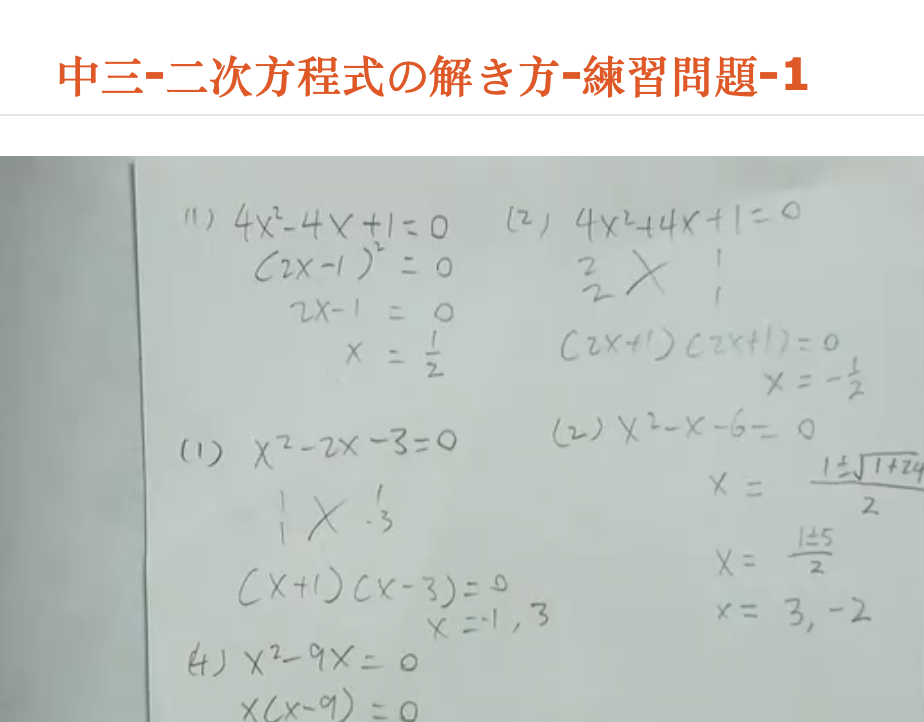 中三-二次方程式の解き方-練習問題-1
(1) 4x²-4x+1=0
(2x-1)² = 0
2x-1 = 0
x = 1/2
(2) 4x²+4x+1=0
2 1
2 1
(2x+1)(2x+1)=0
x = -1/2
(1) x²-2x-3=0
1 1
1 -3
(x+1)(x-3)=0
x=-1, 3
(2) x²-x-6=0
x = 1±√1+24/2
x = 1±5/2
x = 3, -2
(4) x²-9x=0
x(x-9)=0